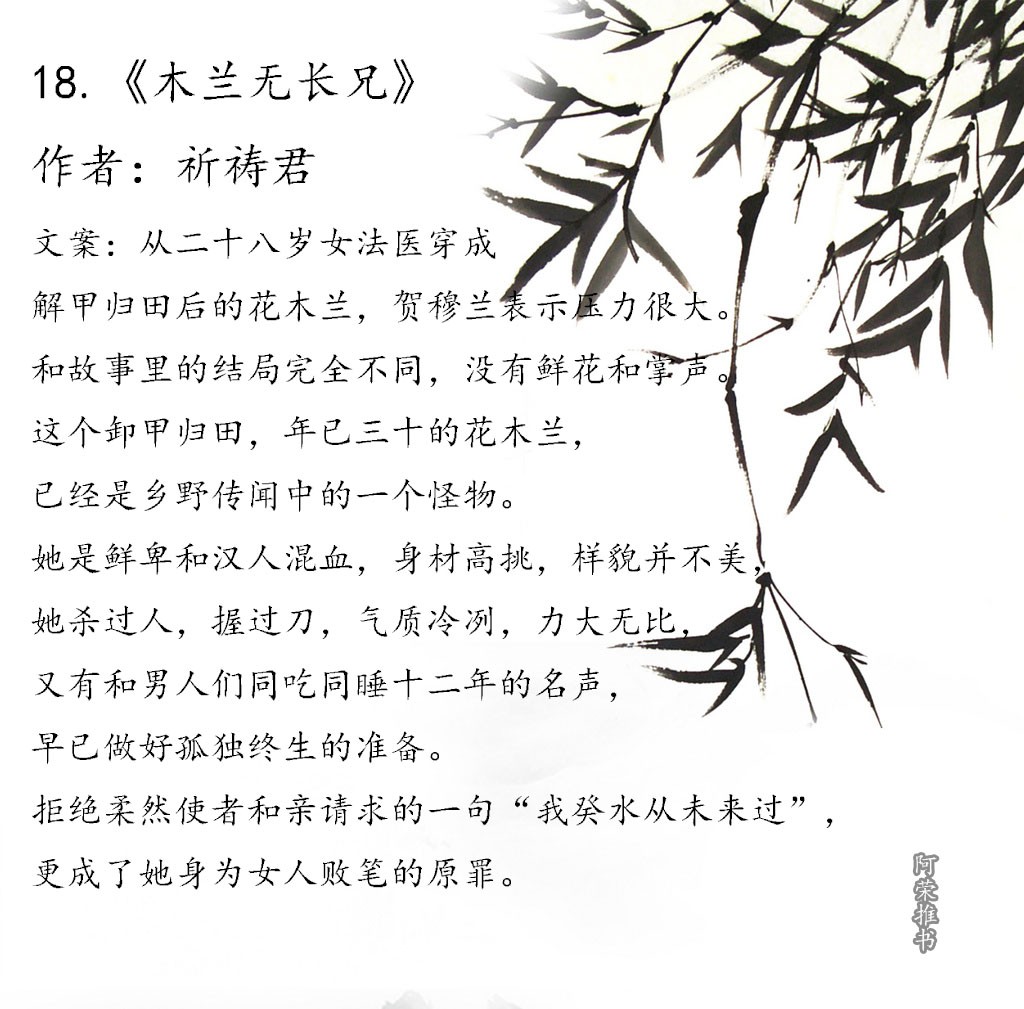 18.《木兰无长兄》
作者：祈祷君
文案：从二十八岁女法医穿成
解甲归田后的花木兰，贺穆兰表示压力很大。
和故事里的结局完全不同，没有鲜花和掌声。
这个卸甲归田，年已三十的花木兰，
已经是乡野传闻中的一个怪物。
她是鲜卑和汉人混血，身材高挑，样貌并不美，
她杀过人，握过刀，气质冷冽，力大无比，
又有和男人们同吃同睡十二年的名声，
早已做好孤独终生的准备。
拒绝柔然使者和亲请求的一句“我癸水从未来过”，
更成了她身为女人败笔的原罪。
阿荣推书